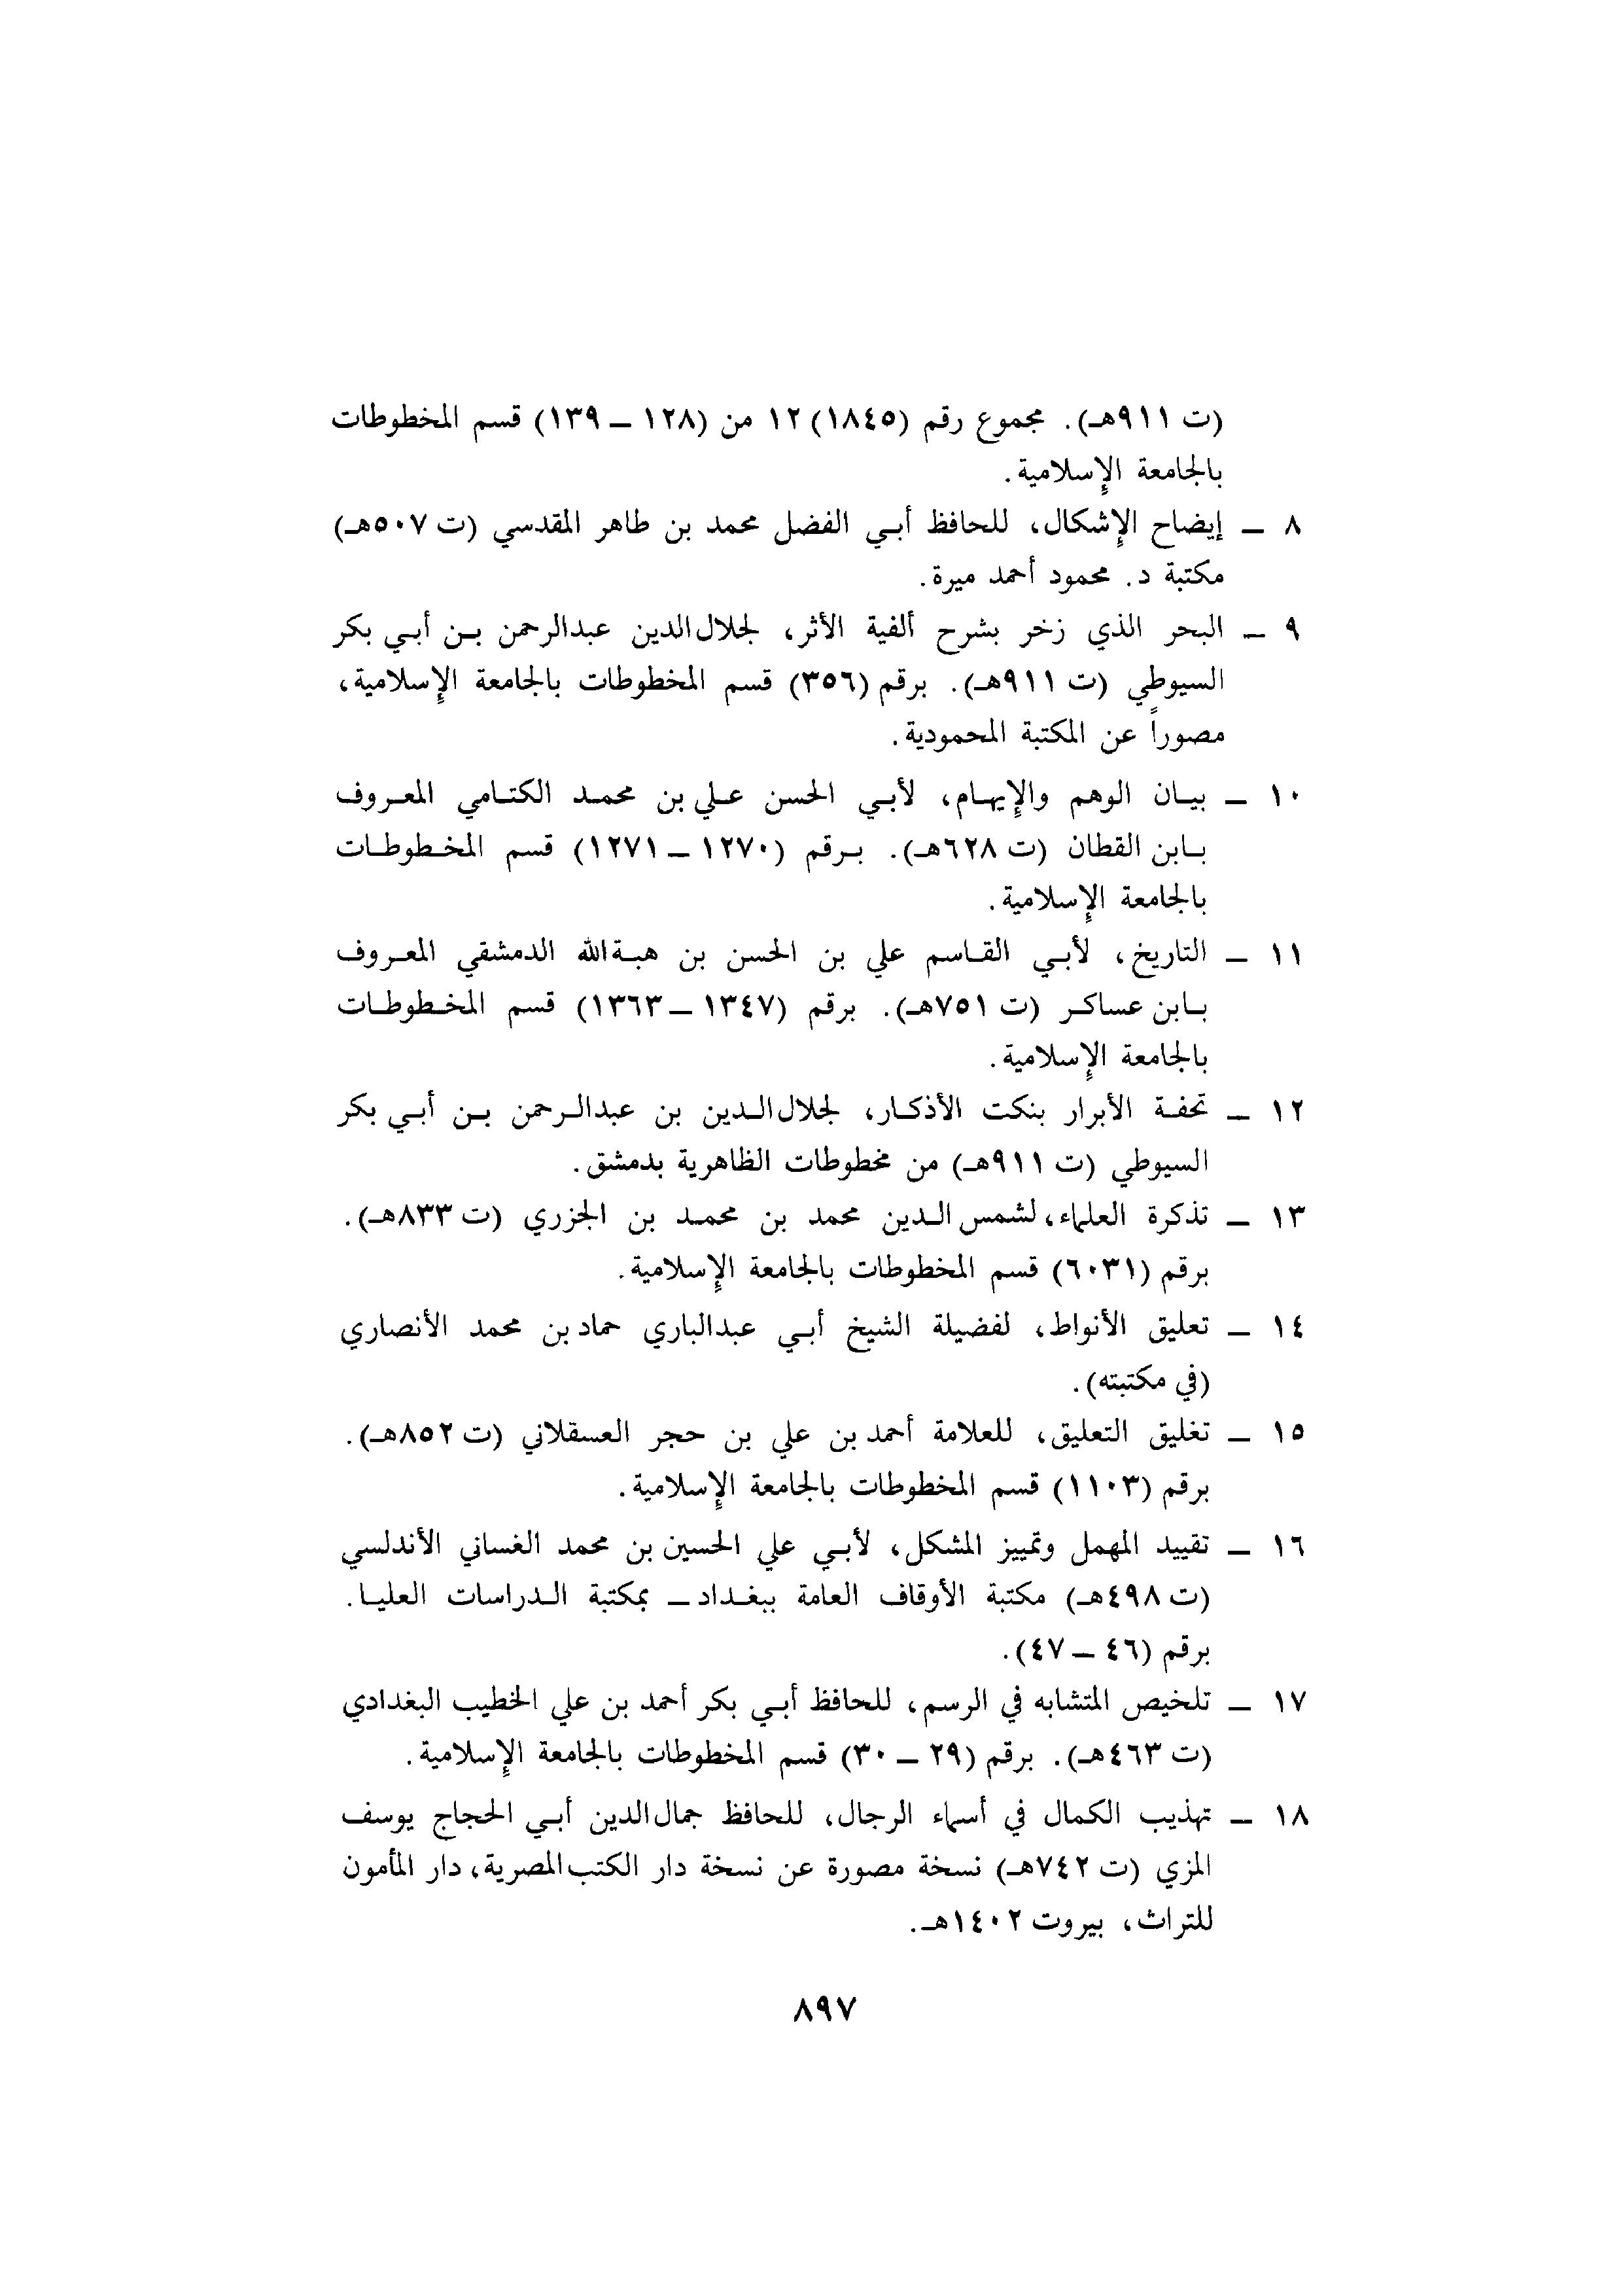 (ت ٩١١هـ). مجموع رقم (١٨٤٥) ١٢ من (١٢٨ ــ ١٣٩) قسم المخطوطات
بالجامعة الإسلامية.
٨ ــ إيضاح الإشكال، للحافظ أبي الفضل محمد بن طاهر المقدسي (ت ٥٠٧هـ)
مكتبة د. محمود أحمد ميرة.
٩ ــ البحر الذي زخر بشرح ألفية الأثر، لجلال الدين عبدالرحمن بن أبي بكر
السيوطي (ت ٩١١هـ). برقم (٣٥٦) قسم المخطوطات بالجامعة الإسلامية،
مصوراً عن المكتبة المحمودية.
١٠ ــ بيان الوهم والإيهام، لأبي الحسن علي بن محمد الكتامي المعروف
بابن القطان (ت ٦٢٨هـ). برقم (١٢٧٠ ــ ١٢٧١) قسم المخطوطات
بالجامعة الإسلامية.
١١ ــ التاريخ، لأبي القاسم علي بن الحسن بن هبة الله الدمشقي المعروف
بابن عساكر (ت ٧٥١هـ). برقم (١٣٤٧ ــ ١٣٦٣) قسم المخطوطات
بالجامعة الإسلامية.
١٢ ــ تحفة الأبرار بنكت الأذكار، لجلال الدين بن عبدالرحمن بن أبي بكر
السيوطي (ت ٩١١هـ) من مخطوطات الظاهرية بدمشق.
١٣ ــ تذكرة العلماء، لشمس الدين محمد بن محمد بن الجزري (ت ٨٣٣هـ).
برقم (٦٠٣١) قسم المخطوطات بالجامعة الإسلامية.
١٤ ــ تعليق الأنواط، لفضيلة الشيخ أبي عبدالباري حماد بن محمد الأنصاري
(في مكتبته).
١٥ ــ تغليق التعليق، للعلامة أحمد بن علي بن حجر العسقلاني (ت ٨٥٢هـ).
برقم (١١٠٣) قسم المخطوطات بالجامعة الإسلامية.
١٦ ــ تقييد المهمل وتمييز المشكل، لأبي علي الحسين بن محمد الغساني الأندلسي
(ت ٤٩٨هـ) مكتبة الأوقاف العامة ببغداد ــ بمكتبة الدراسات العليا.
برقم (٤٦ ــ ٤٧).
١٧ ــ تلخيص المتشابه في الرسم، للحافظ أبي بكر أحمد بن علي الخطيب البغدادي
(ت ٤٦٣هـ). برقم (٢٩ ــ ٣٠) قسم المخطوطات بالجامعة الإسلامية.
١٨ ــ تهذيب الكمال في أسماء الرجال، للحافظ جمال الدين أبي الحجاج يوسف
المزي (ت ٧٤٢هـ) نسخة مصورة عن نسخة دار الكتب المصرية، دار المأمون
للتراث، بيروت ١٤٠٢هـ.
٨٩٧